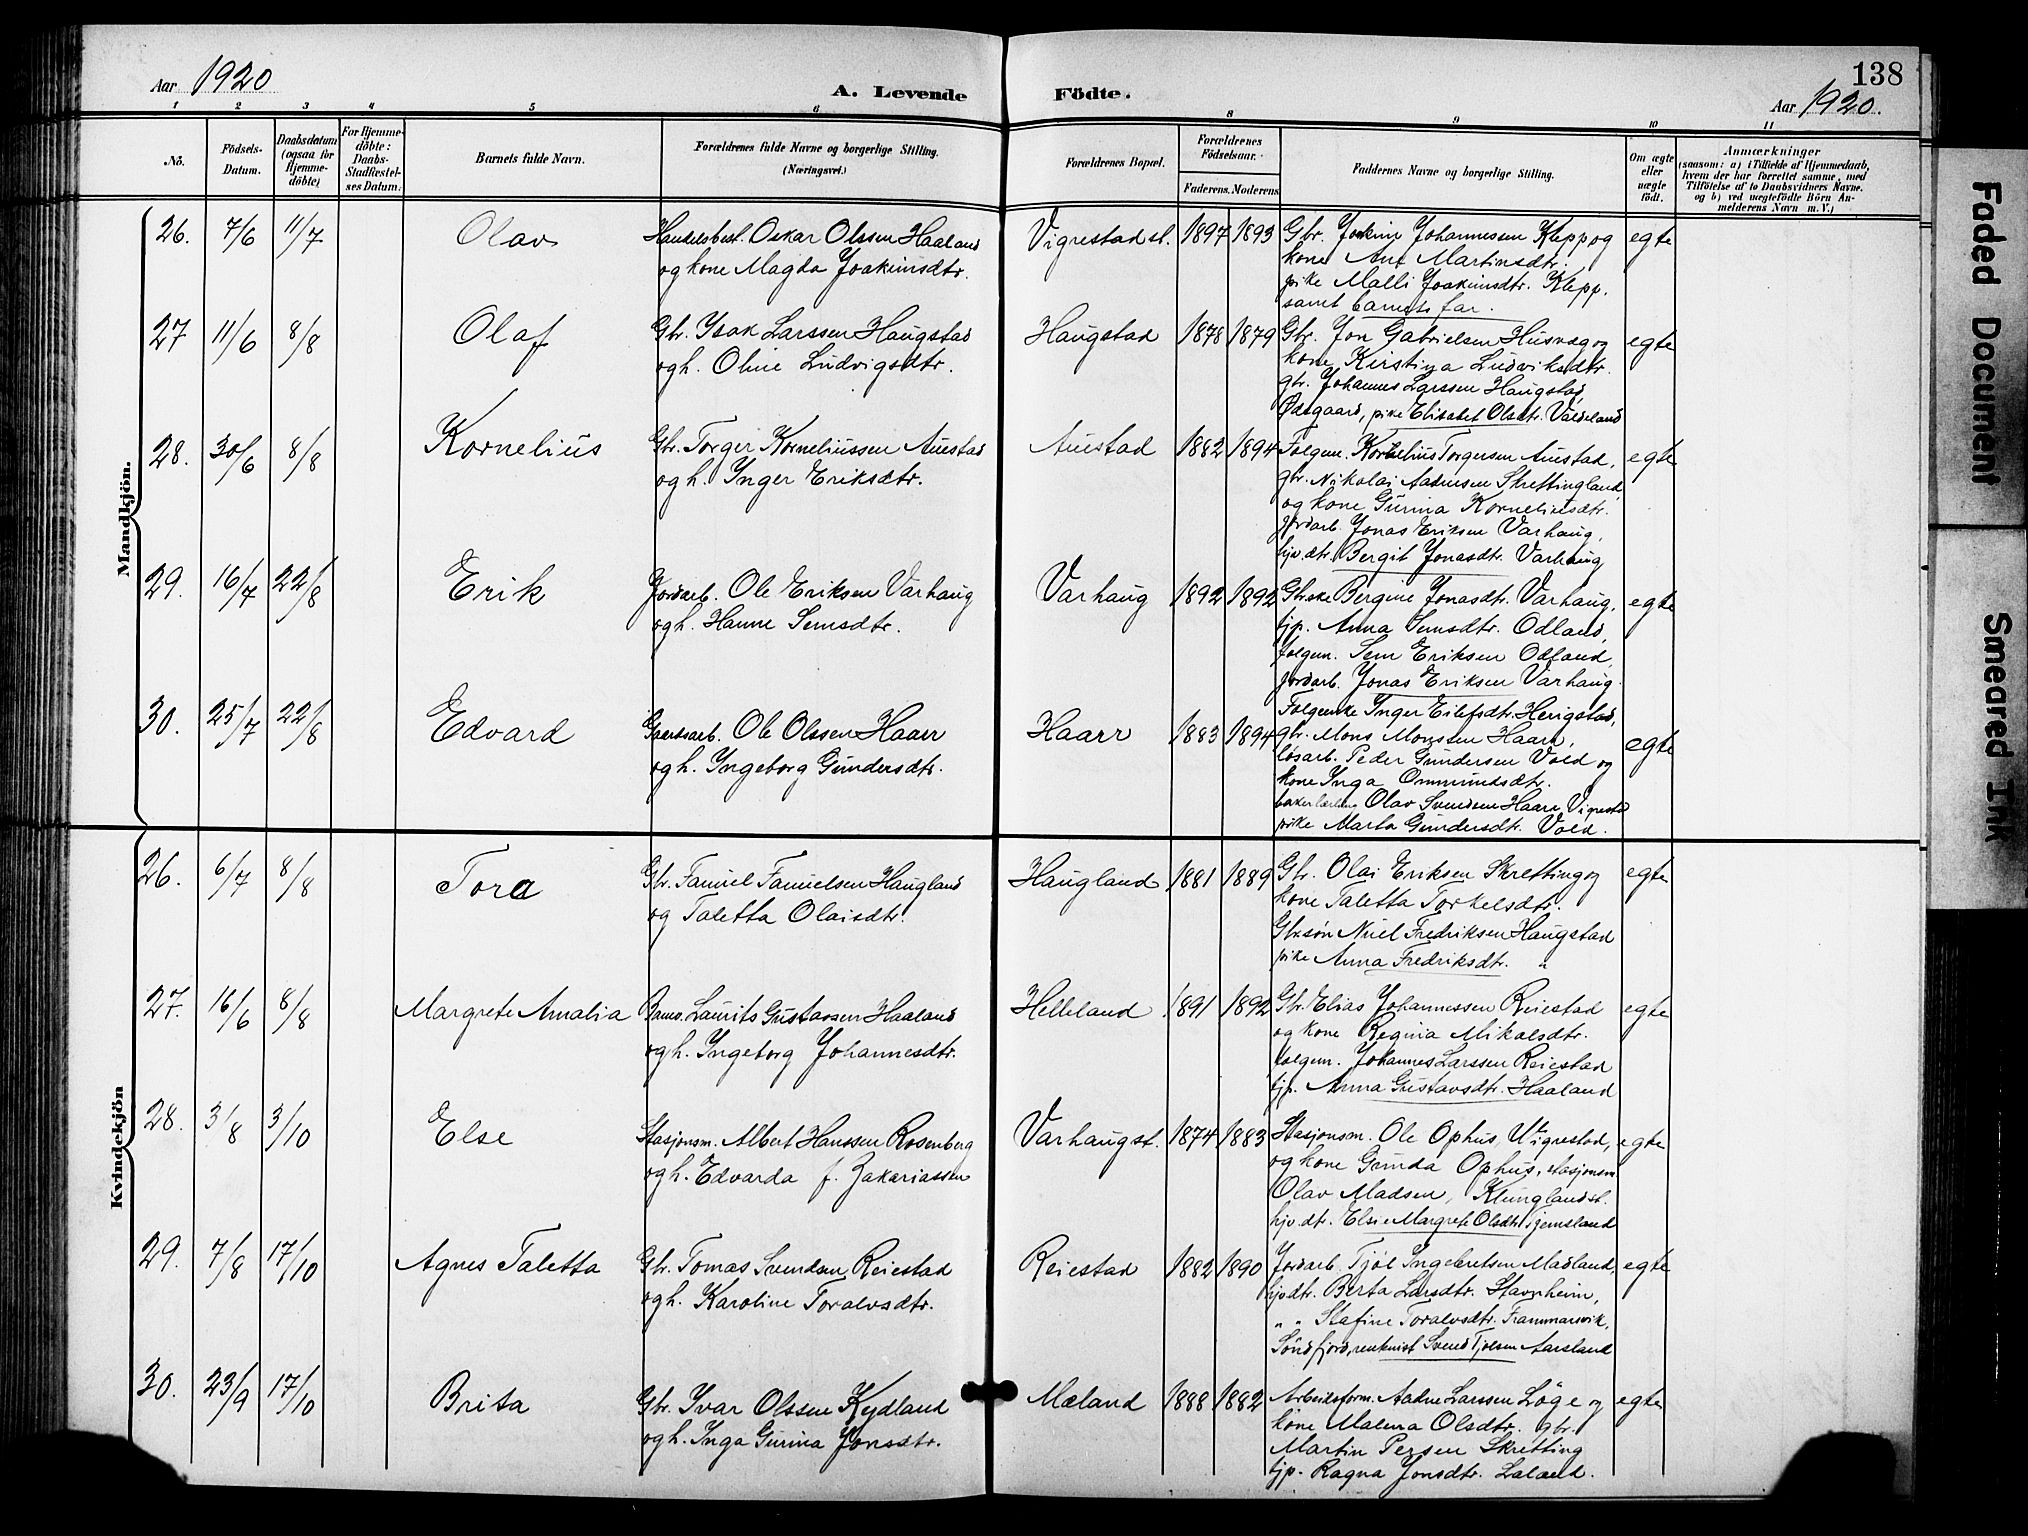 138
Aar 1920
A. Levende Födte.
Aar 1920.
1 2 3 4 5 6 8 9 10 11
Nö.
Födsels-Datum.
Daabsdatum (ogsaa for Hjemme-döbte)
For Hjemme-döbte: Daabs-Stadfestel-ses Datum.
Barnets fulde Navn.
Forældrenes fulde Navne og borgerlige Stilling.
(Næringsvei.)
Forældrenes Bopæl.
Forældrenes Födselsaar.
Faderens. Moderens.
Faddernes Navne og borgerlige Stilling.
Om ægte eller uægte födt.
Anmærkninger
(saasom: a) i Tilfælde af Hjemmedaab,
hvem der har forrettet samme, med
Tilföielse af to Daabsvidners Navne.
og b) ved uægtefödte Börn An-
melderens Navn m. V.)
Mandkjön.
26. 7/6 11/7 Olav Handelsbest. Oskar Olssen Haaland Vigrestad st. 1897 1893 Gbr. Joakim Johannessen Klepp og egte
og kone Magda Joakimsdtr. kone Ane Martinsdtr.
pike Malli Joakimsdtr. Klepp.
samt barnets far.
27 11/6 8/8 Olaf Gbr. Isak Larssen Haugstad Haugstad 1878 1879 Gbr. Jon Gabrielsen Husvæg og egte
og h. Oline Ludvigsdtr. kone Kirstina Ludviksdtr.
gbr. Johannes Larssen Haugstad,
Ødegaard, pike Elisabet Olsdtr. Valdeland
28. 30/6 8/8 Kornelius Gbr. Torger Korneliussen Auestad Auestad 1882 1894 Folgem. Kornelius Torgersen Auestad, egte
og h. Inger Eriksdtr. gbr. Nikolai Aadnesen Skrettingland
og kone Gurina Korneliusdtr.
jordarb. Jonas Eriksen Varhaug,
hjv. dtr. Bergit Jonasdtr. Varhaug
29. 16/7 22/8 Erik Jordarb. Ole Eriksen Varhaug Varhaug 1892 1892 Gbrske Bergine Jonasdtr. Varhaug, egte
og h. Hanne Semsdtr. tjp. Anna Semsdtr. Odland,
folgem. Sem Eriksen Odland,
jordarb. Jonas Eriksen Varhaug.
30. 25/7 22/8 Edvard Ole Olssen Haarr Haarr 1883 1894 Folgenke Inger Eilefsdtr. Herigstad, egte
og h. Ingeborg Gundersdtr. gbr. Mons Monssen Haarr,
løsarb. Peder Gundersen Vold og
kone Inga Ommundsdtr.
bakerlærling Olav Svendsen Haarr, Vigrestad
pike Marta Gundersdtr. Vold.
Kvindekjön
26. 6/7 8/8 Tora Gbr. Samuel Samuelsen Haugland Haugland 1881 1889 Gbr. Olai Eriksen Skretting og egte
og Taletta Olaisdtr. kone Taletta Torkelsdtr.
Gbrsøn Niel Fredriksen Haugstad
pike Anna Fredriksdtr. „
27. 16/6 8/8 Margrete Amalia Laurits Gustavsen Haaland Helleland 1891 1892 Gbr. Elias Johannessen Reiestad egte
og h. Ingeborg Johannesdtr. og kone Regina Mikalsdtr.
folgem. Johannes Larssen Reiestad
tjp. Anna Gustavsdtr. Haaland
28. 3/8 3/10 Else Stasjonsm. Albert Hanssen Rosenberg Varhaug st. 1874 1883 Stasjonsm. Ole Ophus, Vigrestad, egte
og h. Edvarda f. Zakariassen og kone Gunda Ophus, stasjonsm.
Olav Madsen, Klungland st.
hjv. dtr. Elsie Margrete Olsdtr.
29. 7/8 17/10 Agnes Taletta Gbr. Tomas Svendsen Reiestad Reiestad 1882 1890 Jordarb. Tjøl Ingebretsen Madland, egte
og h. Karoline Toralvsdtr. hjv dtr. Berta Larsdtr. Stavnheim,
„ „ Stafine Toralvsdtr.
Søndfjord, Svend Tjølsen Aarsland
30. 23/9 17/10 Brita Gbr. Ivar Olssen Kydland Mæland 1888 1882 Arbeidsform. Aadne Larssen Løge og egte
og h. Inga Gurina Jonsdtr. kone Malena Olsdtr. gbr.
Martin Persen Skretting
tjp. Ragna Jonsdtr. Laland.
Faded Document
Smeared Ink